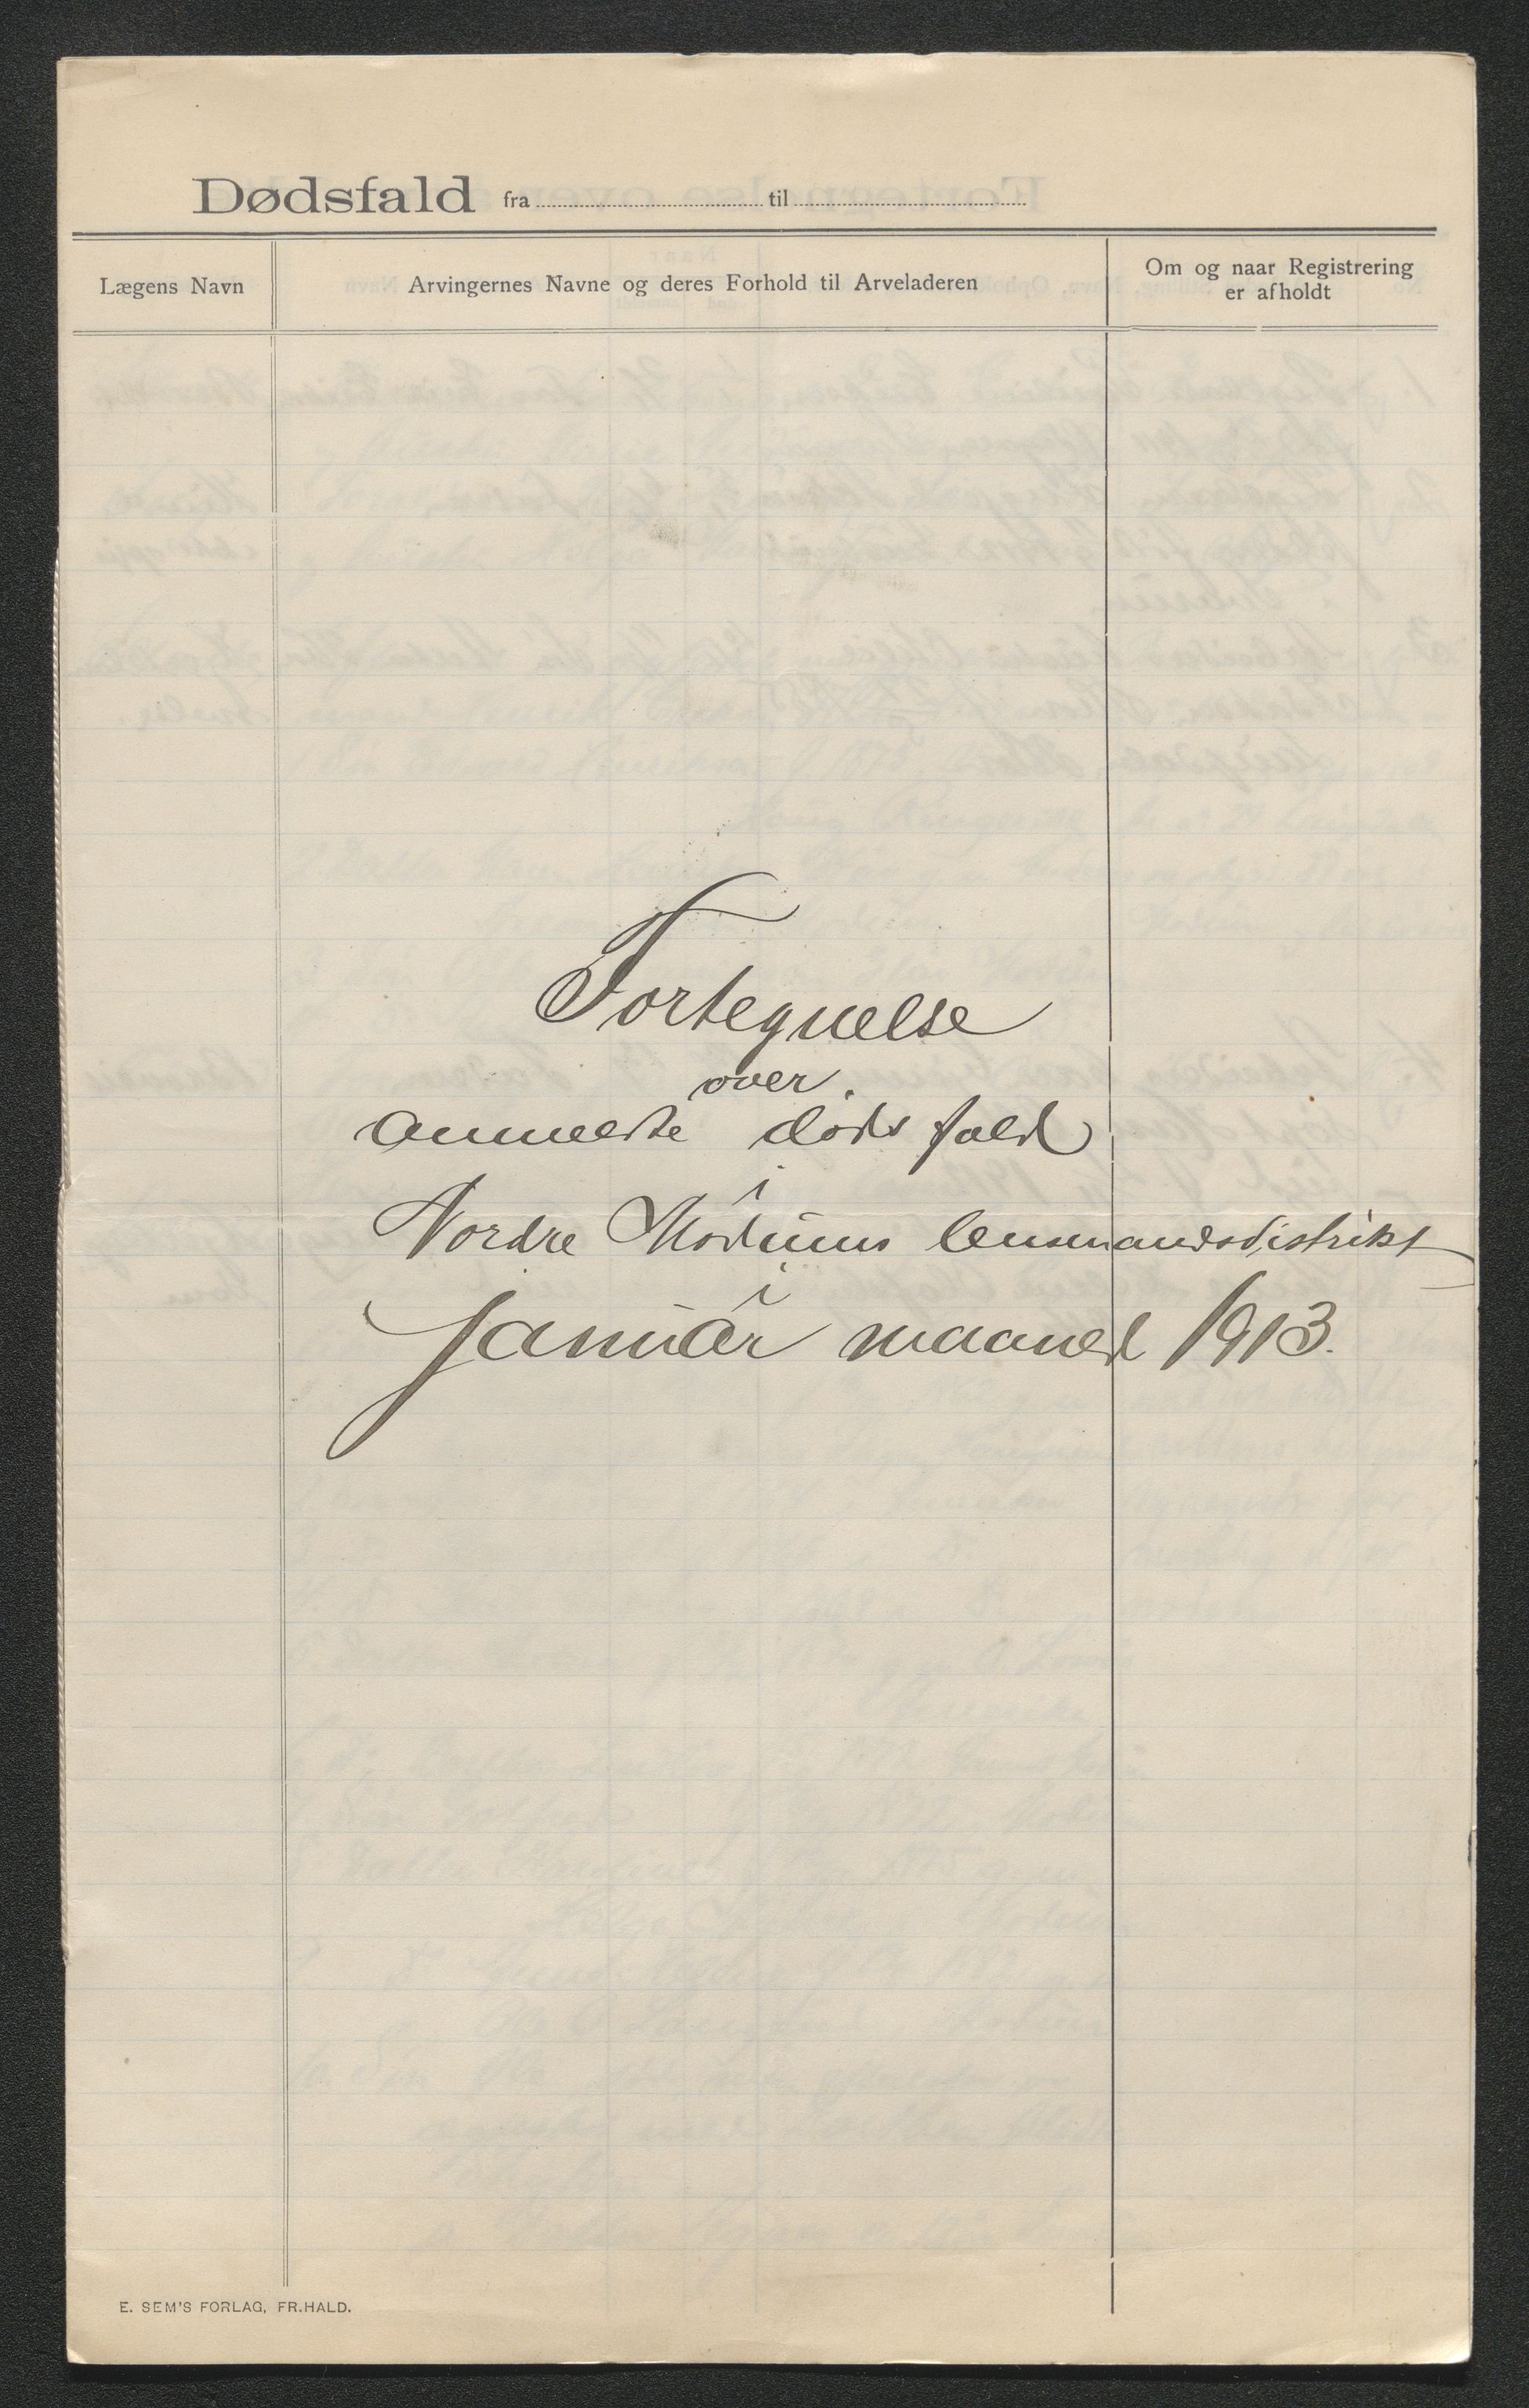 Dødsfald fra til
Lægens Navn
Arvingernes Navne og deres Forhold til Arveladeren
Om og naar Registrering
er afholdt
Fortegnelse
over
anmeldte dødsfald
i
Nordre Modums lensmandsdistrikt
i
Januar maaned 1913.
E. SEM'S FORLAG, FR.HALD.